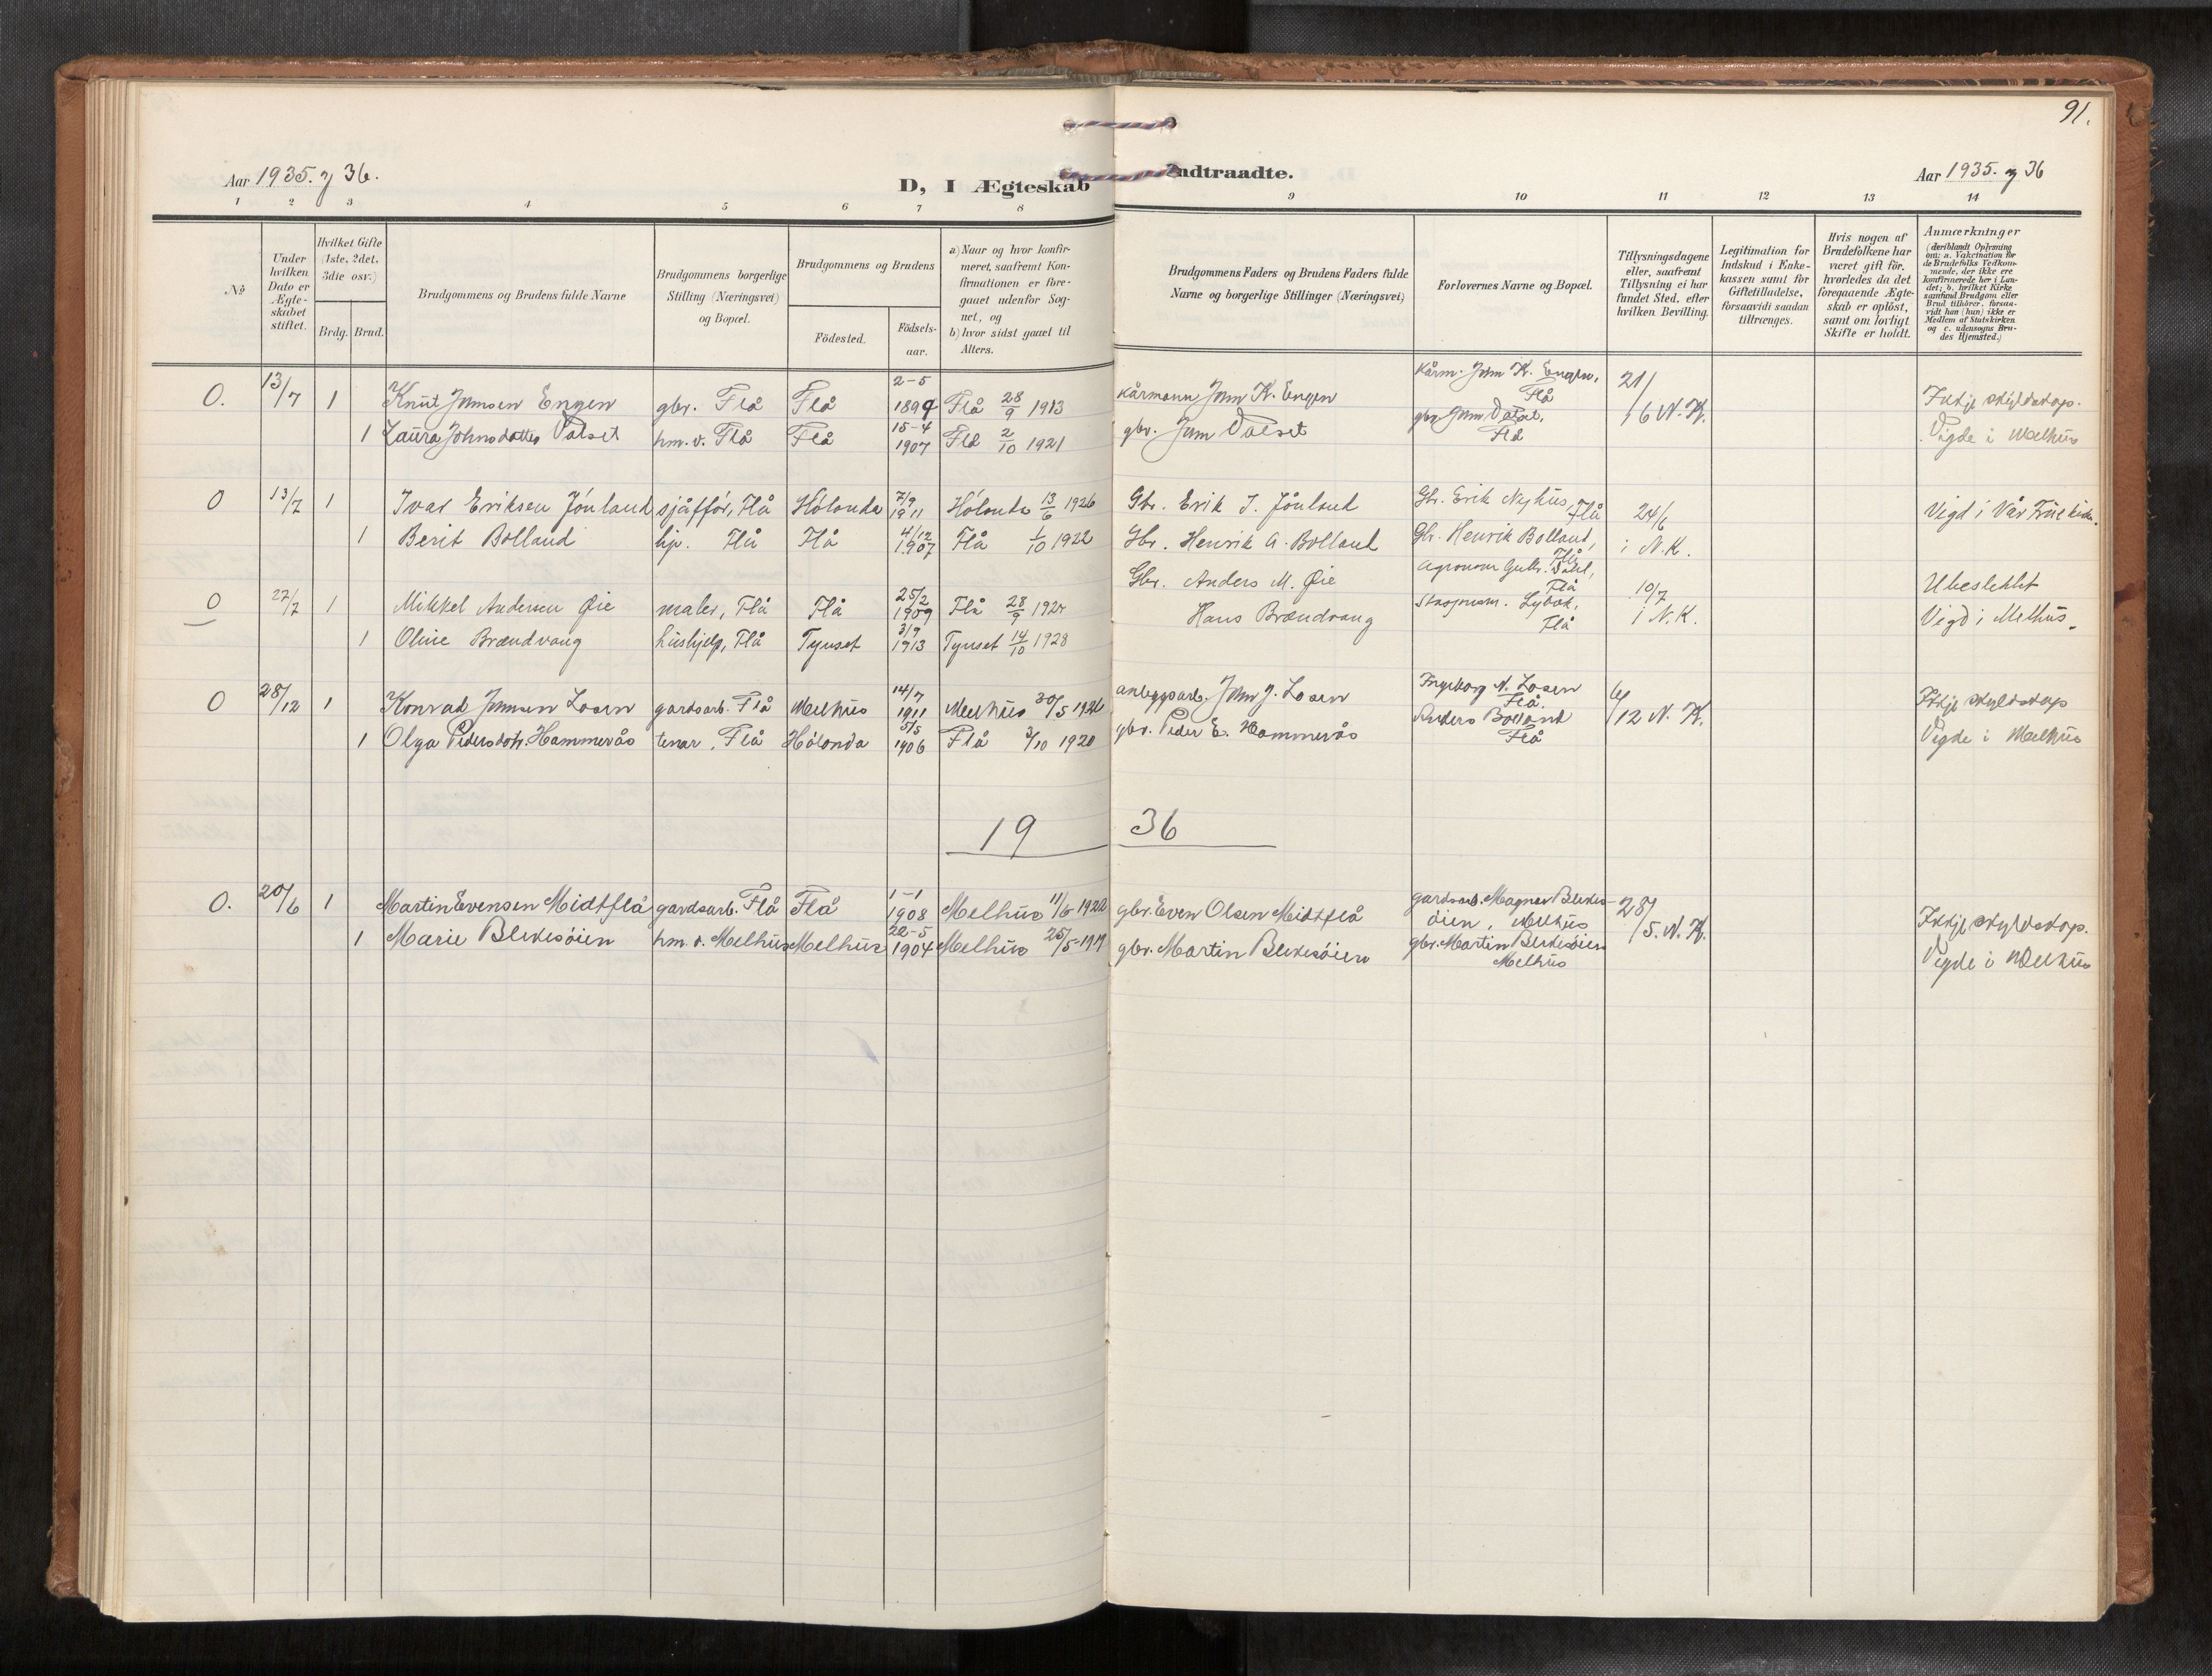 91.
Aar 1935. og 36.
D, I Ægteskab Indtraadte.
Aar 1935. og 36
1 2 3 4 5 6 7 8 9 10 11 12 13 14
No
Under hvilken Dato er Ægteskabet stiftet.
Hvilket Gifte (1ste, 2det, 3die osv.)
Brdg. Brud.
Brudgommens og Brudens fulde Navne
Brudgommens borgerlige Stilling (Næringsvei) og Bopæl.
Brudgommens og Brudens
Födested.
Födselsaar.
a) Naar og hvor konfirmeret, saafremt Konfirmationen er foregaaet udenfor Sognet, og
b) hvor sidst gaaet til Alters.
Brudgommens Faders og Brudens Faders fulde Navne og borgerlige Stillinger (Næringsvei)
Forlovernes Navne og Bopæl.
Tillysningsdagene eller, saafremt Tillysning ei har fundet Sted, efter hvilken Bevilling.
Legitimation for Indskud i Enkekassen samt for Giftetilladelse, forsaavidt saadan tiltrænges.
Hvis nogen af Brudefolkene har været gift för, hvorledes da det foregaaende Ægteskab er oplöst, samt om lovligt Skifte er holdt.
Anmærkninger
(deriblandt Oplysning om: a. Vakcination for de Brudefolks Vedkommende, der ikke ere konfirmerede her i Landet; b. hvilket Kirkesamfund Brudgom eller Brud tilhörer, forsaavidt han (hun) ikke er Medlem af Statskirken og c. udensogns Brudes Hjemsted.)
O. 13/7 1 Knut Jonsen Engen gbr. Flå Flå 2-5 1899 Flå 28/9 1913 kårmann Jon K. Engen kårm. Jon K. Engen, Flå 21/6 N.K. Ikkje skyldskap.
1 Laura Johnsdatter Valset hm. v. Flå Flå 15-4 1907 Flå 2/10 1921 gbr. Jon Valset gbr. Jon Valset, Flå Vigde i Melhus
O 13/7 1 Ivar Eriksen Jónland sjåffór, Flå Hólonda 7/9 1911 Hólonda 13/6 1926 Gbr. Erik I. Jónland Gbr. Erik Nyhus, Flå 24/6 Vigd i Vår Frue kirke.
1 Berit Bolland hp. Flå Flå 4/12 1907 Flå 1/10 1922 Gbr. Henrik A. Bolland Gbr. Henrik Bolland, Flå i N.K.
O 27/7 1 Mikkel Andersen Øie maler, Flå Flå 25/2 1909 Flå 28/9 Gbr. Anders M. Øie Agronom Flå 10/7 Ubeslektet
1 Oline Brændvang hushjelp, Flå Tynset 3/9 1913 Tynset 14/10 1928 Hans Brændvang Flå i N.K. Vigd i Melhus.
O 28/12 1 Konrad Jonsen Losen gardsarb. Flå Melhus 14/7 1911 Melhus 30/5 1926 anleggsarb. John J. Losen Ingeborg N. Losen Flå. 6/12 N.K. Ikkje skyldskap
1 Olga Pedersdotr. Hammerås tenar, Flå Hólonda 5/5 1906 Flå 3/10 1920 gbr. Peder E. Hammerås Anders Bolland Flå Vigde i Melhus
19 36
O. 20/6 1 Martin Evensen Midtflå gardsarb. Flå Flå 1-1 1908 Melhus 11/6 1922 gbr. Even Olsen Midtflå gardsarb. Magnar Blekesöien, Melhus 28/5. N.K. Ikkje skyldskap.
1 Marie Blekesöien hm. v. Melhus Melhus 22-5 1904 Melhus 25/5 1919 gbr. Martin Blekesöien gbr. Martin Blekesöien Melhus Vigde i Melhus